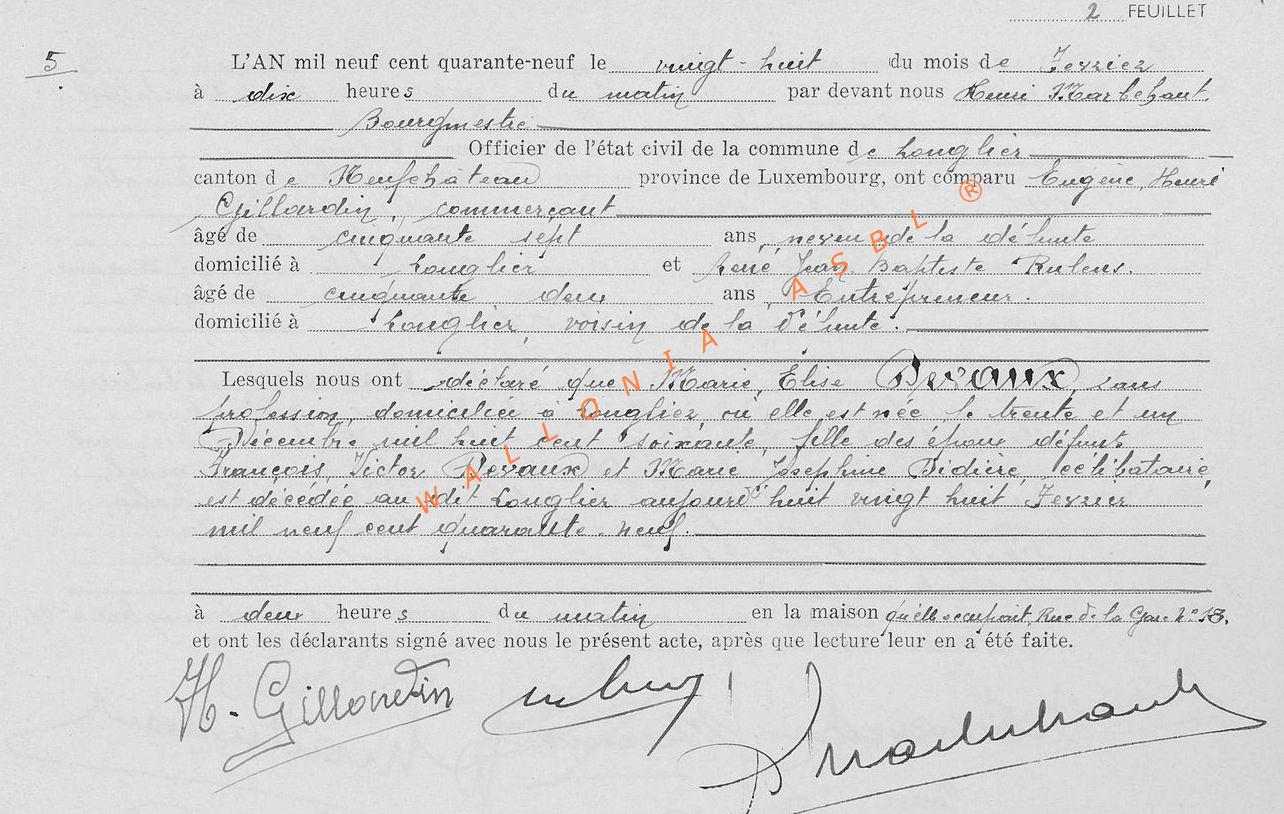 2 FEUILLET
5
L'AN mil neuf cent quarante-neuf le vingt-huit du mois de Fevrier
à dix heures du matin par devant nous Henri Marbehant,
Bourgmestre
Officier de l'état civil de la commune de Longlier
canton de Neufchâteau province de Luxembourg, ont comparu Eugène, Henri
Gillardin, commerçant
âgé de cinquante sept ans, neveu de la défunte
domicilié à Longlier et René Jean Baptiste Rulens.
âgé de cinquante deux ans, Entrepreneur.
domicilié à Longlier, voisin de la défunte.
Lesquels nous ont déclaré que Marie, Elise Devaux, sans
profession, domiciliée à Longlier où elle est née le trente et un
Décembre mil huit cent soixante, fille des époux défunts
François, Victor Devaux et Marie Josephine Didière, célibataire,
est décédée au dit Longlier aujourd'huit vingt huit Fevrier
mil neuf cent quarante-neuf.
à deux heures du matin en la maison qu'elle occupait, Rue de la Gare N° 18.
et ont les déclarants signé avec nous le présent acte, après que lecture leur en a été faite.
H. Gillardin
WALLONIA ASBL ®